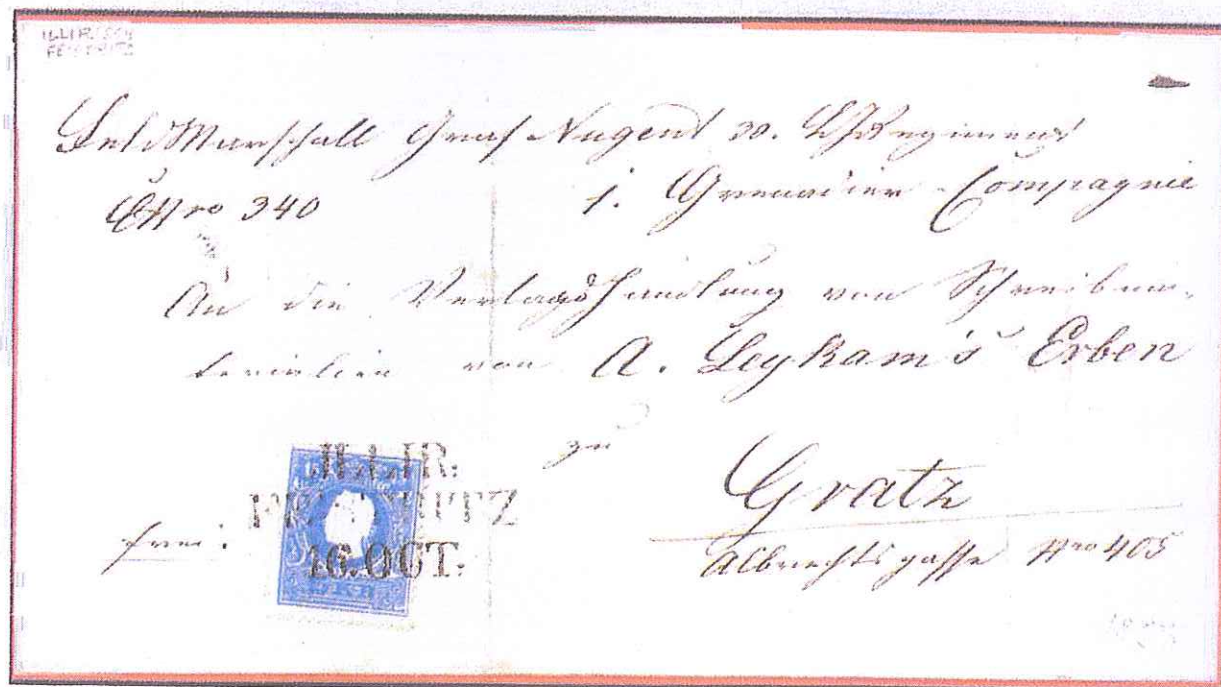 ILLIRISCH
FEISTRITZ
FeldMarschall Graf Nugent 30. Regiment
No 340 1. Grenadier-Compagnie
An die Verlagshandlung von Schreibma-
terialien von A. Leykam's Erben
zu
Gratz
Albrechtsgasse No 405
frei:
ILLIR.
FEISTRITZ
16. OCT.